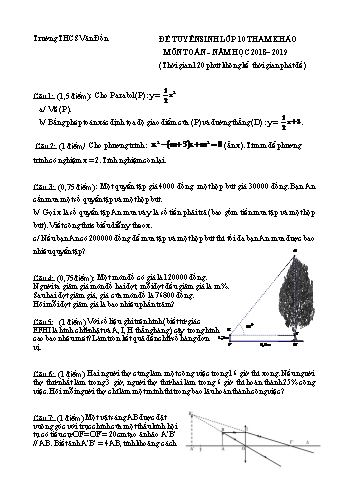 Trường THCS Vân Đồn
ĐỀ TUYỂN SINH LỚP 10 THAM KHẢO
MÔN TOÁN – NĂM HỌC 2018 – 2019
(Thời gian 120 phút không kể thời gian phát đề)
Câu 1: (1,5 điểm): Cho Parabol (P): y = 1/2 x²
a/ Vẽ (P).
b/ Bằng phép toán xác định tọa độ giao điểm của (P) và đường thẳng (D): y =
Câu 2: (1 điểm) Cho phương trình: (ẩn x). Tìm m để phương
trình có nghiệm x = 2. Tính nghiệm còn lại.
Câu 3: (0,75 điểm): Một quyển tập giá 4000 đồng một hộp bút giá 30000 đồng. Bạn An
cần mua một số quyển tập và một hộp bút.
b/ Gọi x là số quyển tập An mua và y là số tiền phải trả (bao gồm tiền mua tập và một hộp
bút). Viết công thức biểu diễn y theo x.
c/ Nếu bạn An có 200000 đồng để mua tập và một hộp bút thì tối đa bạn An mua được bao
nhiêu quyển tập?
Câu 4: (0,75 điểm): Một món đồ có giá là 120000 đồng.
Người ta giảm giá món đồ hai đợt, mỗi đợt đều giảm giá là m%.
Sau hai đợt giảm giá, giá của món đồ là 76800 đồng.
Hỏi mỗi đợt giảm giá là bao nhiêu phần trăm?
Câu 5: (1 điểm) Với số liệu ghi trên hình (biết tứ giác
EFHI là hình chữ nhật và A, I, H thẳng hàng) cây trong hình
cao bao nhiêu mét? Làm tròn kết quả đến chữ số hàng đơn
vị.
Câu 6: (1 điểm) Hai người thợ cùng làm một công việc trong 16 giờ thì xong. Nếu người
thợ thứ nhất làm trong 3 giờ, người thợ thứ hai làm trong 6 giờ thì hoàn thành 25% công
việc. Hỏi mỗi người thợ chỉ làm một mình thì trong bao lâu hoàn thành công việc?
Câu 7: (1 điểm) Một vật sáng AB được đặt
vuông góc với trục chính của một thấu kính hội
tụ có tiêu cự OF = OF' = 20cm tạo ảnh ảo A'B'
// AB. Biết ảnh A'B' = 4AB, tính khoảng cách